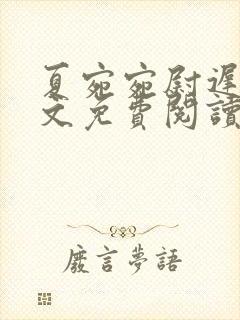 夏宛宛尉遲
文免費閱讀
廢言夢語